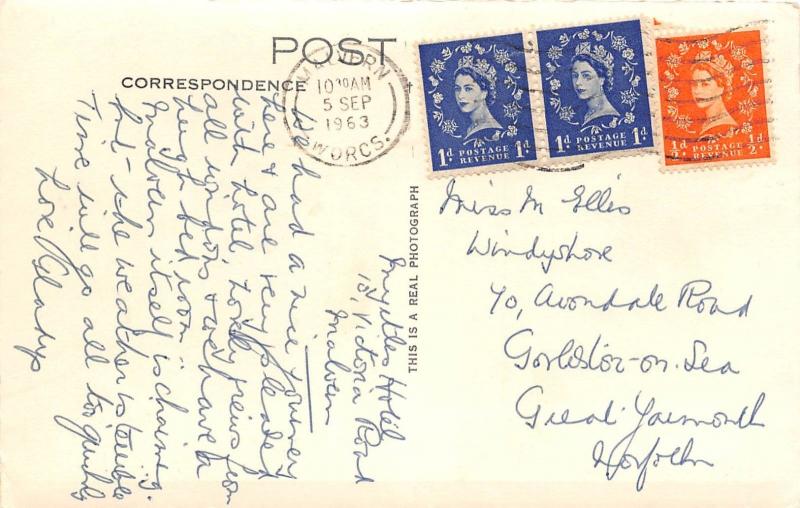 POST
CORRESPONDENCE
MALVERN
10 30 AM
5 SEP
1963
WORCS.
1d POSTAGE REVENUE 1d
1d POSTAGE REVENUE 1d
½d POSTAGE REVENUE ½d
Myrtles Hotel
15, Victoria Road
Malvern
We had a nice journey
here & are very pleased
with hotel lovely views from
all windows & we have a
large bed room.
Malvern itself is charming.
but - the weather is terrible
Time will go all too quickly
Love Gladys
THIS IS A REAL PHOTOGRAPH
Miss M Ellis
Windyshore
40, Avondale Road
Gorleston-on-Sea
Great Yarmouth
Norfolk